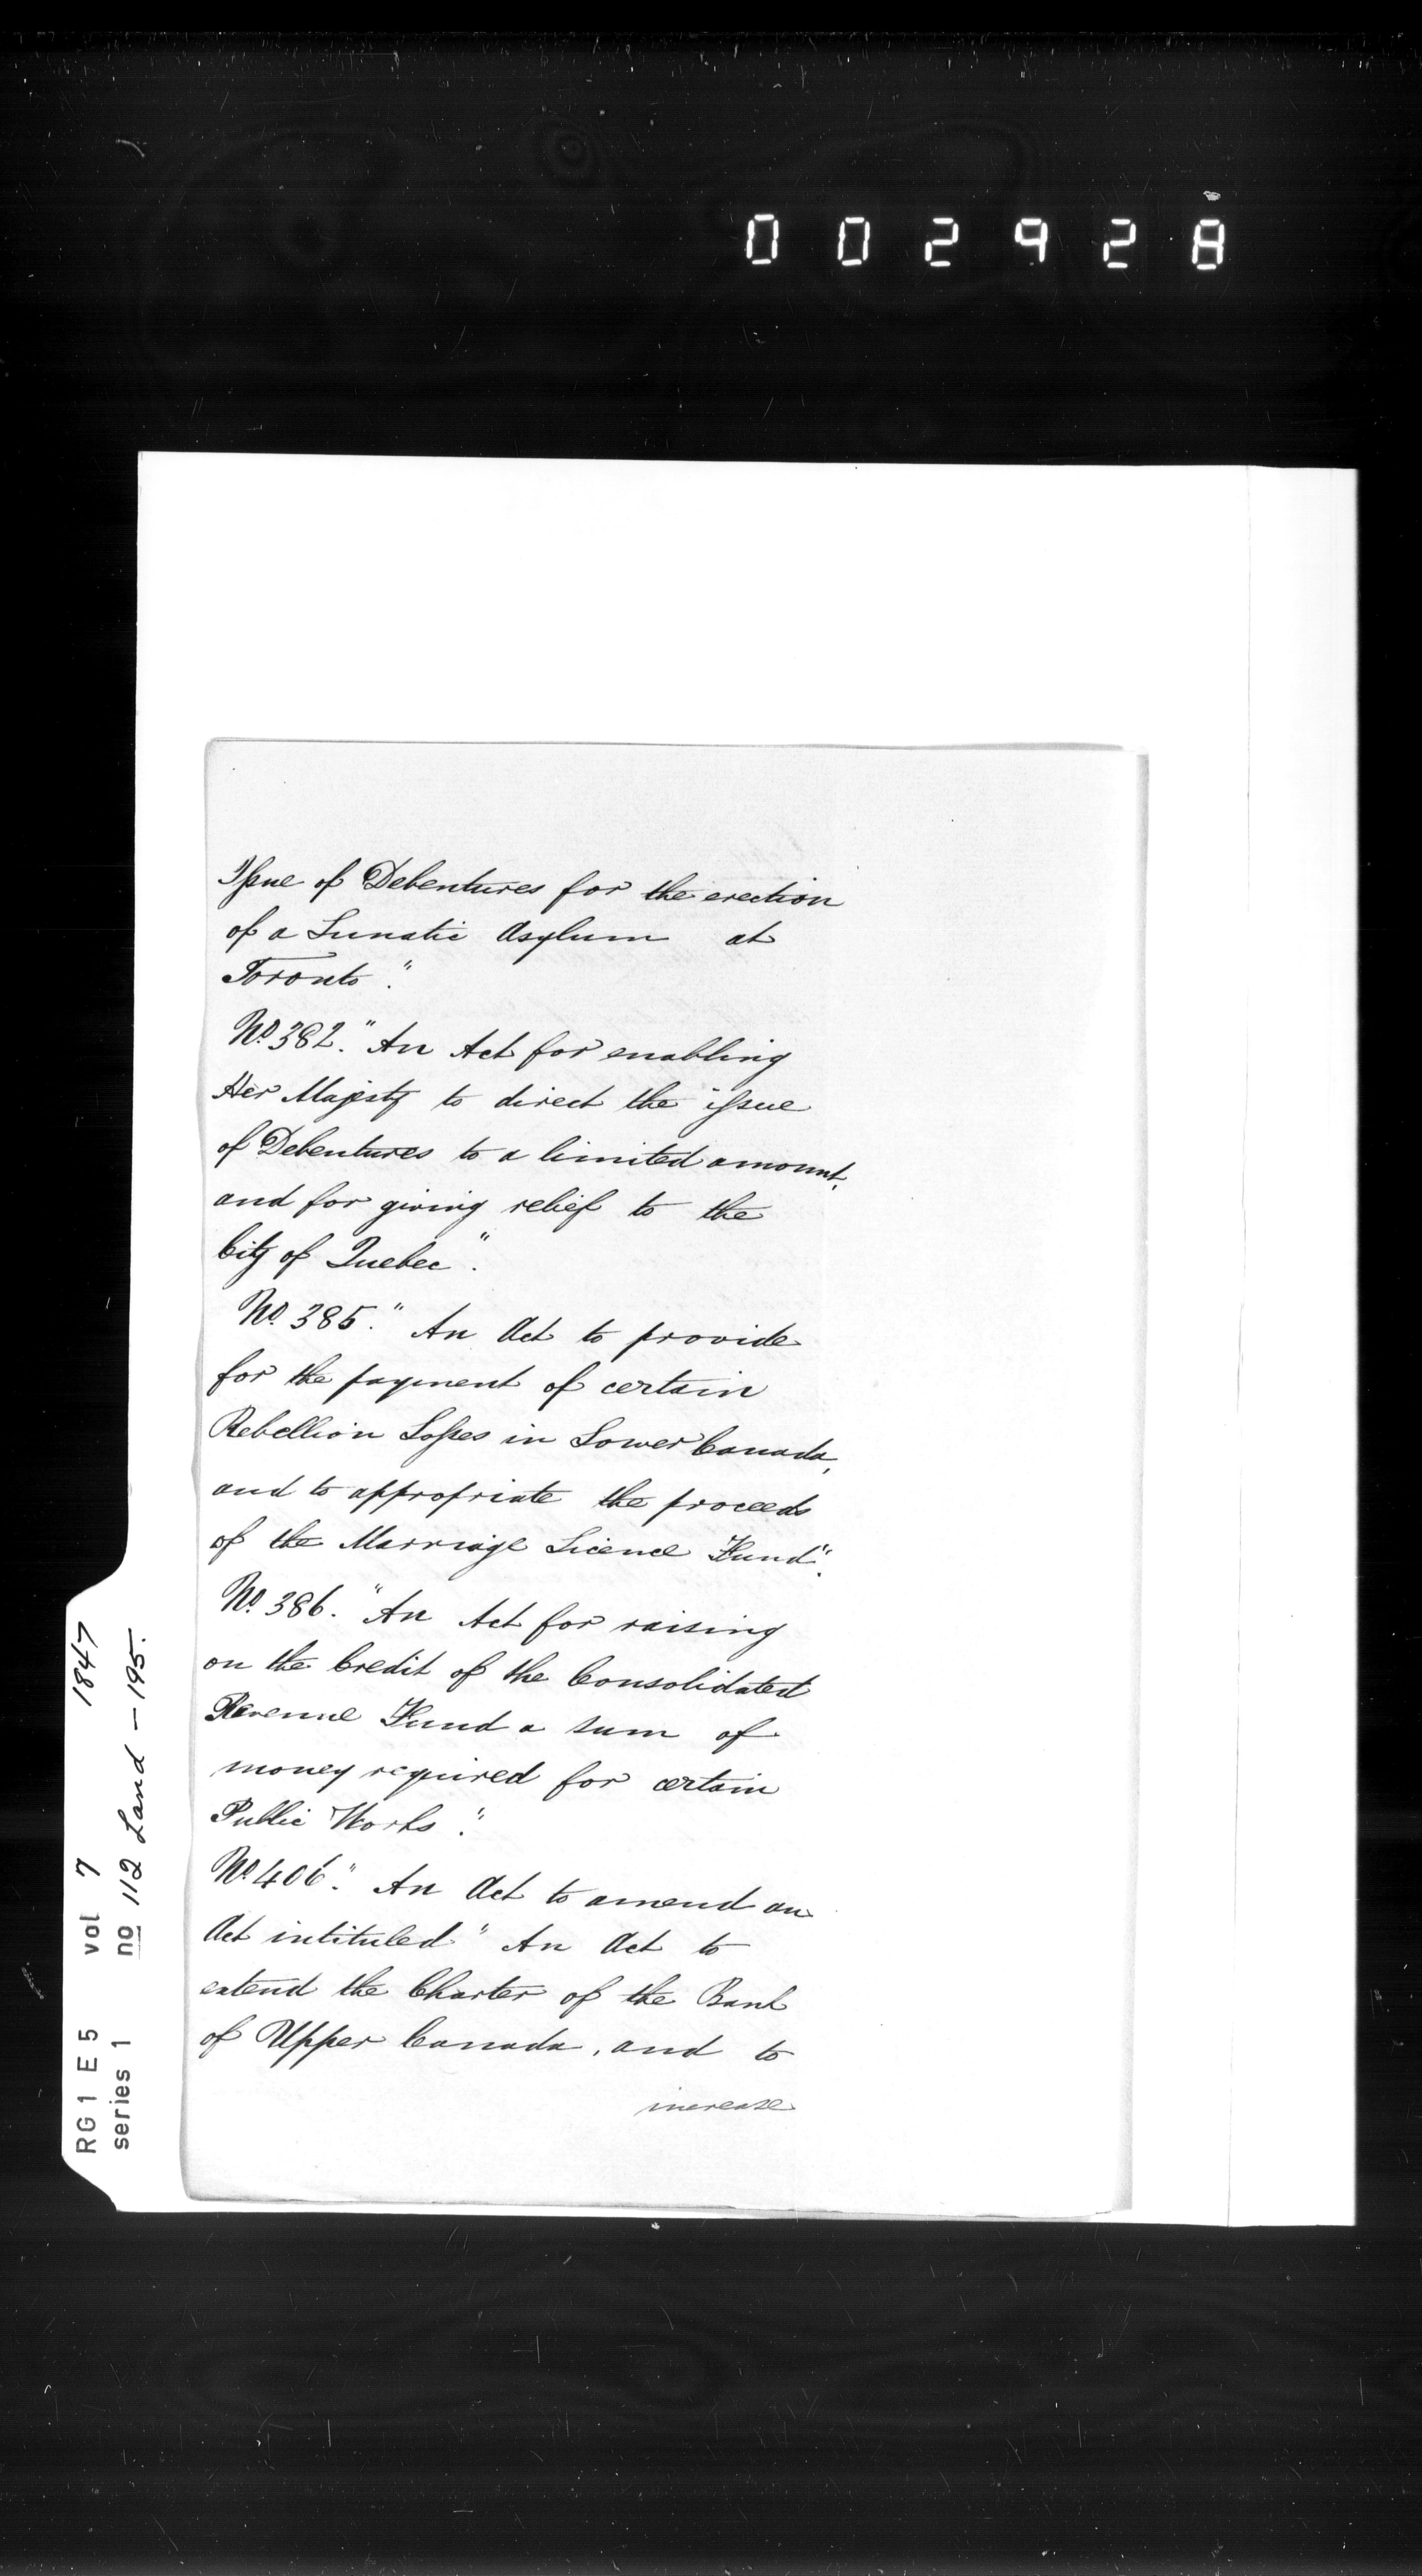 002928
Issue of Debentures for the erection
of a Lunatic Asylum at
Toronto".
No. 382. "An Act for enabling
Her Majesty to direct the issue
of Debentures to a limited amount,
and for giving relief to the
City of Quebec".
No. 385." An Act to provide
for the payment of certain
Rebellion Losses in Lower Canada,
and to appropriate the proceeds
of the Marriage Licence Fund".
No. 386. "An Act for raising
on the Credit of the Consolidated
Revenue Fund a sum of
money required for certain
Public Works".
No. 406." An Act to amend an
Act intituled "An Act to
extend the Charter of the Bank
of Upper Canada, and to
increase
RG1 E5 vol 7 1847
series 1 no 112 Land - 195.